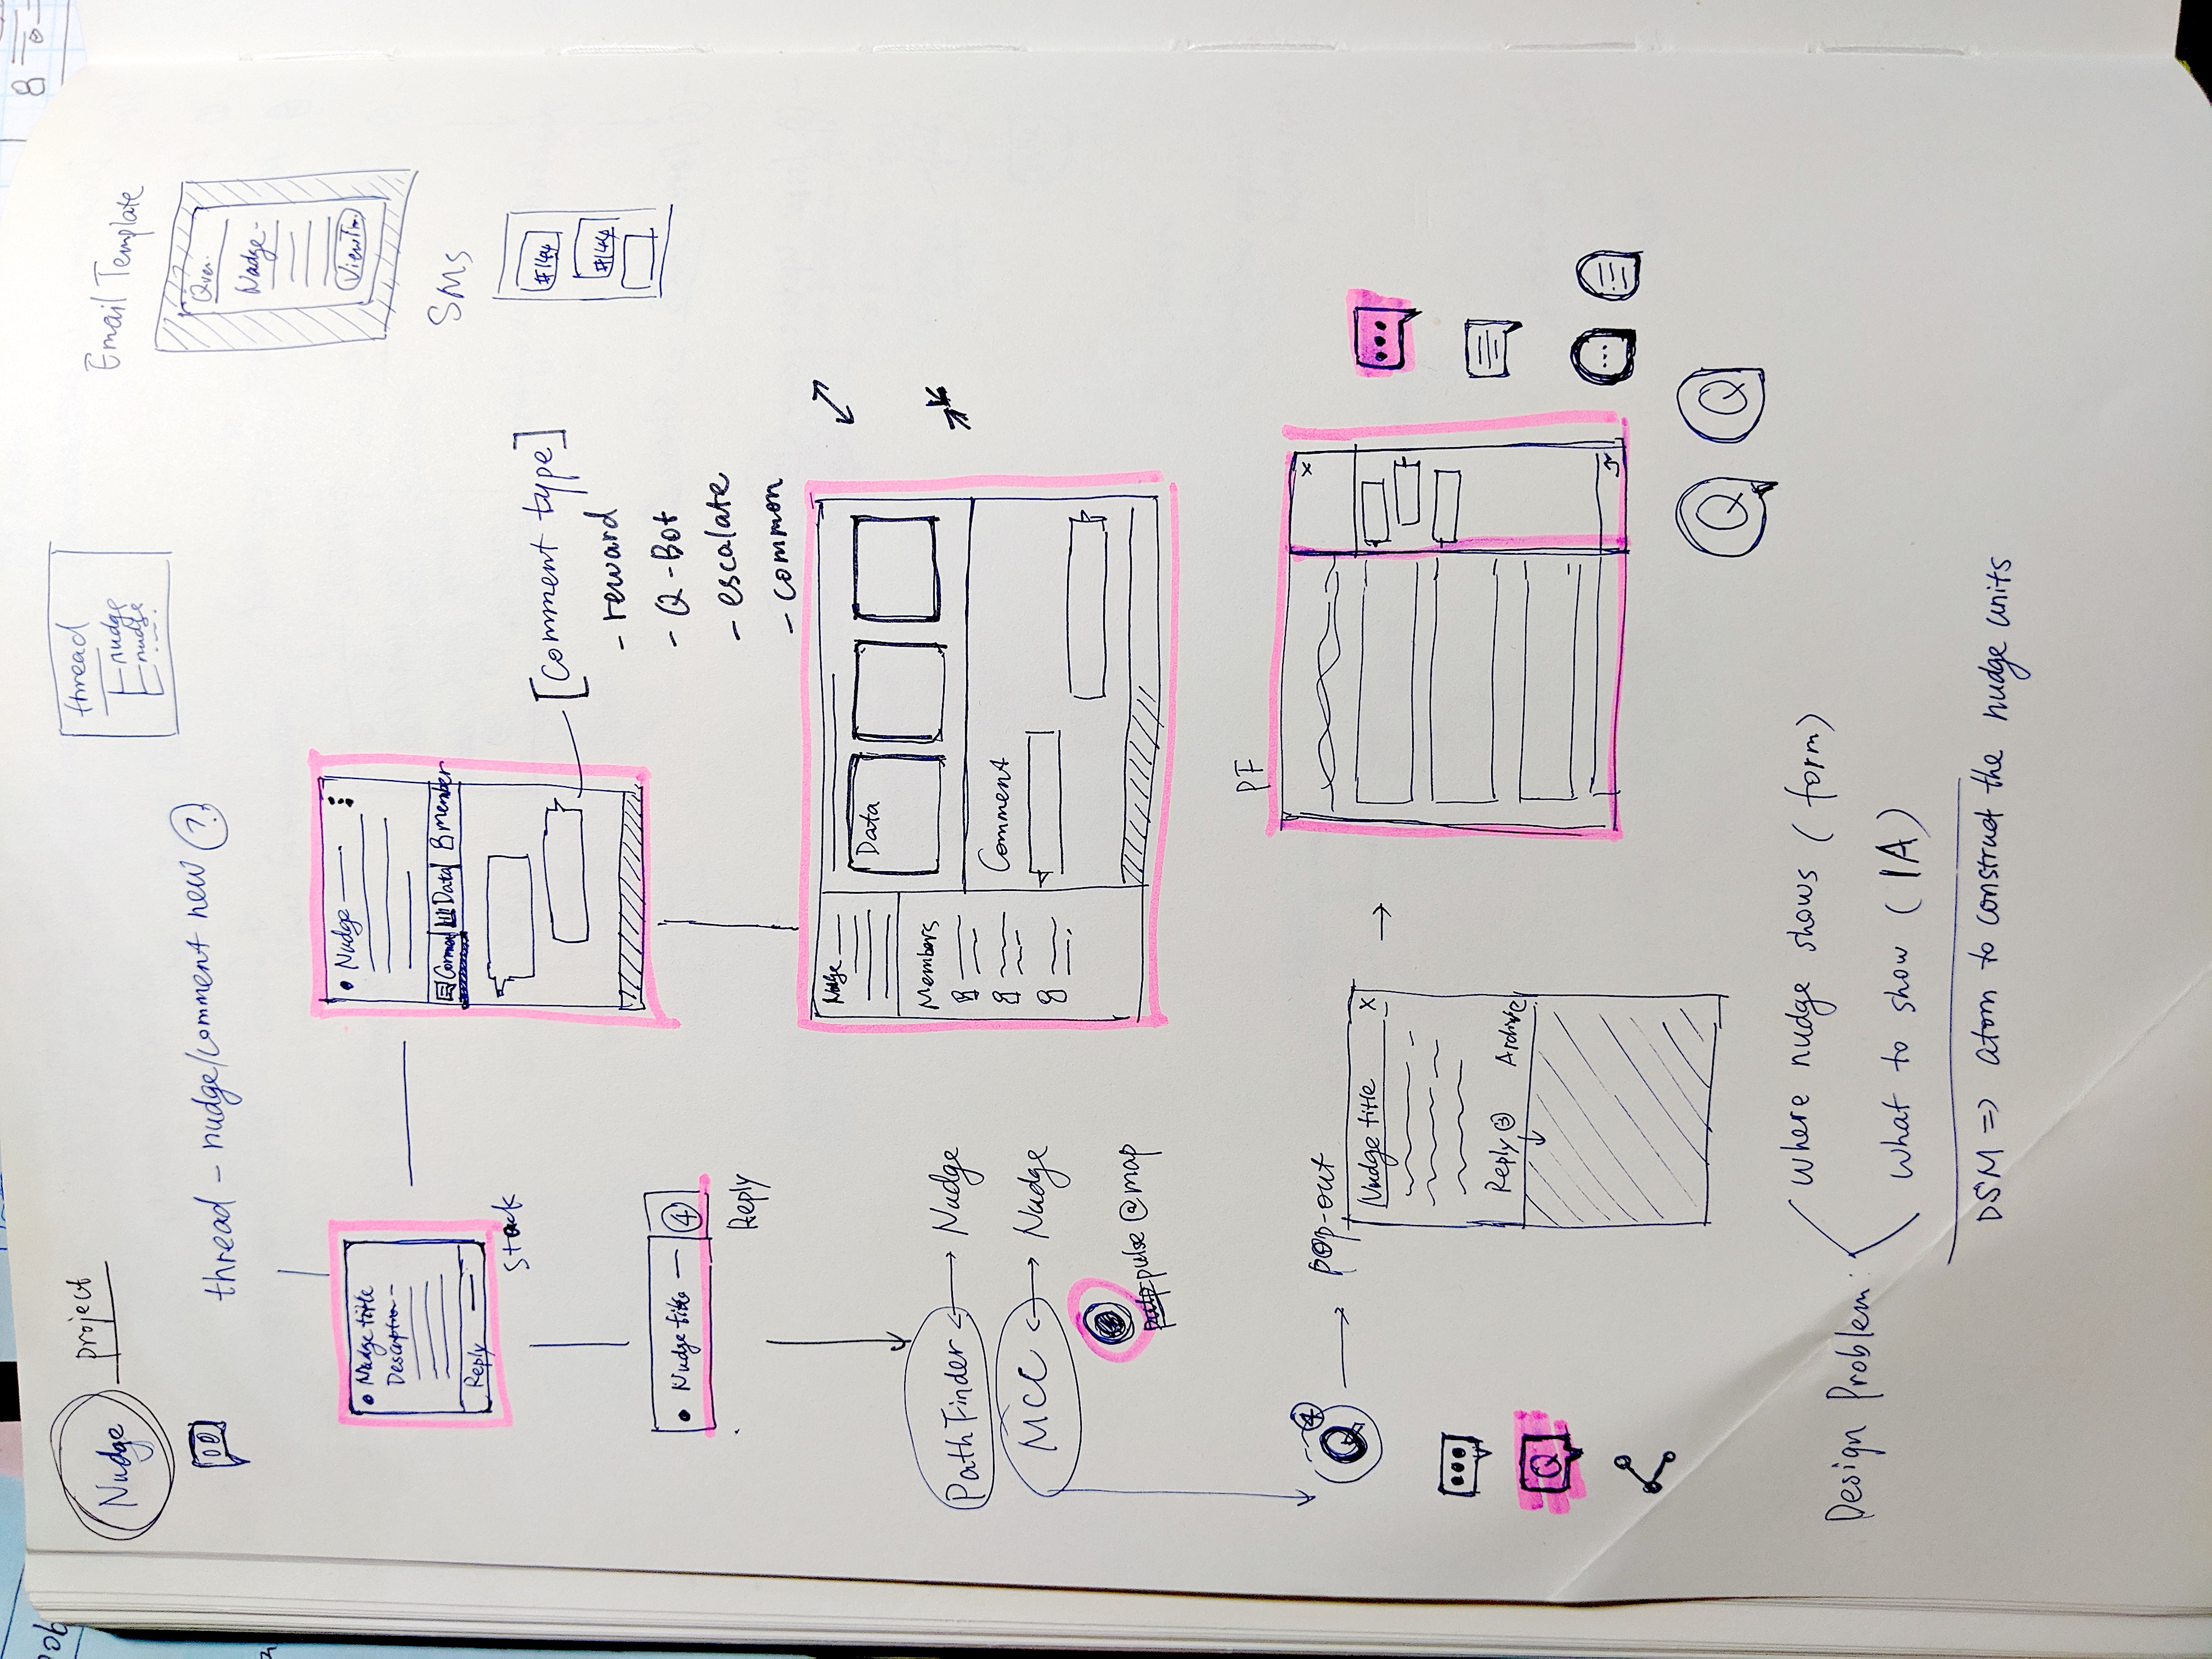 Nudge project
thread
nudge
nudge
Email Template
thread - nudge/comment new ?
Nudge -
Nudge title
Description
Reply
Stack
Nudge
Comment Data member
SMS
#144
#144
[Comment type]
- reward
- Q-Bot
- escalate
- common
Nudge title
4
Reply
Nudge
Data
Members
Comment
PathFinder
Nudge
MCC
Nudge
pulse @map
PF
4
Q
pop-out
Nudge title x
x
Reply 3 Archive
Q
Q Q
Design Problem:
where nudge shows (form)
what to show (IA)
DSM => atom to construct the nudge units